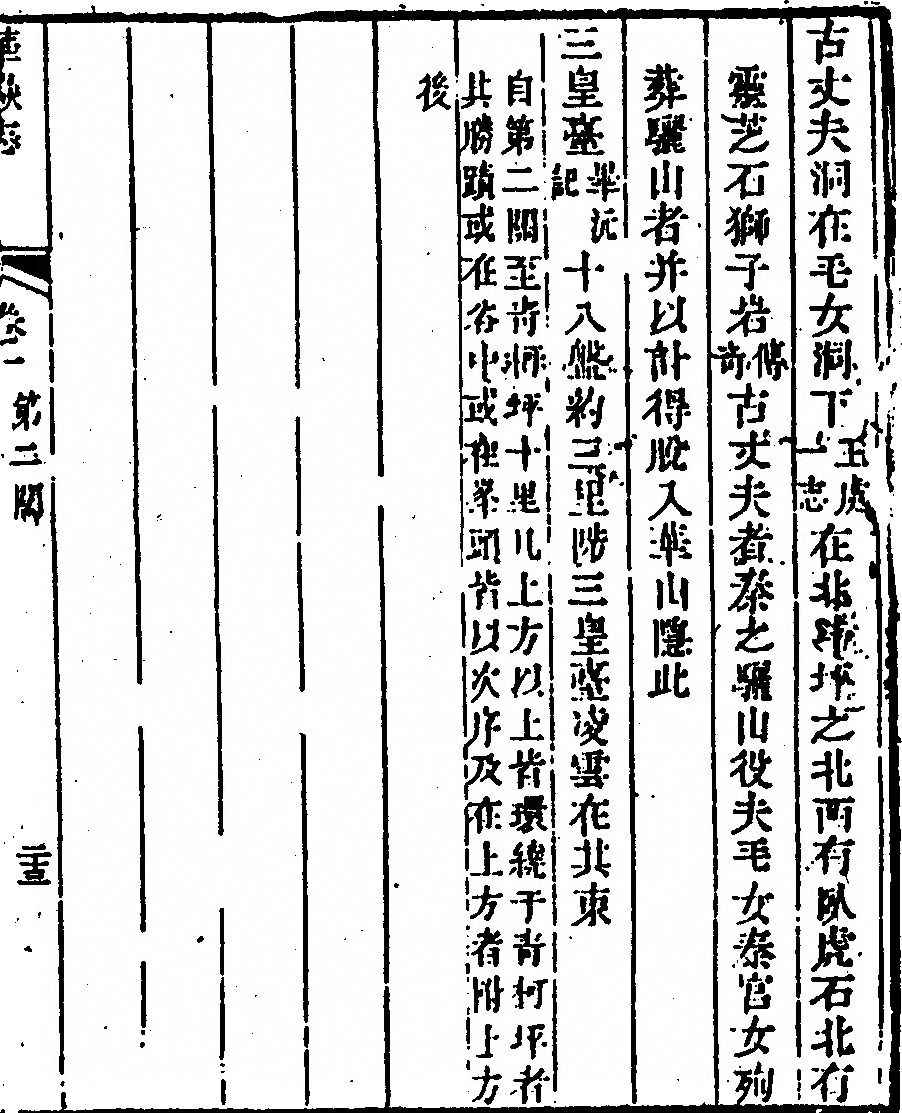 古丈夫洞在毛女洞下王處一志在北斗坪之北西有臥虎石北有
靈芝石獅子岩傳奇古丈夫者秦之驪山役夫毛女秦宮女殉
葬驪山者并以計得脫入華山隱此
三皇臺華沅記十八盤約三里陟三皇臺凌雲在其東
自第二關至青柯坪十里凡上方以上皆環繞于青柯坪者
其勝蹟或在谷中或在峯頭皆以次序及在上方者附上方
後
華嶽志
卷一
第二關